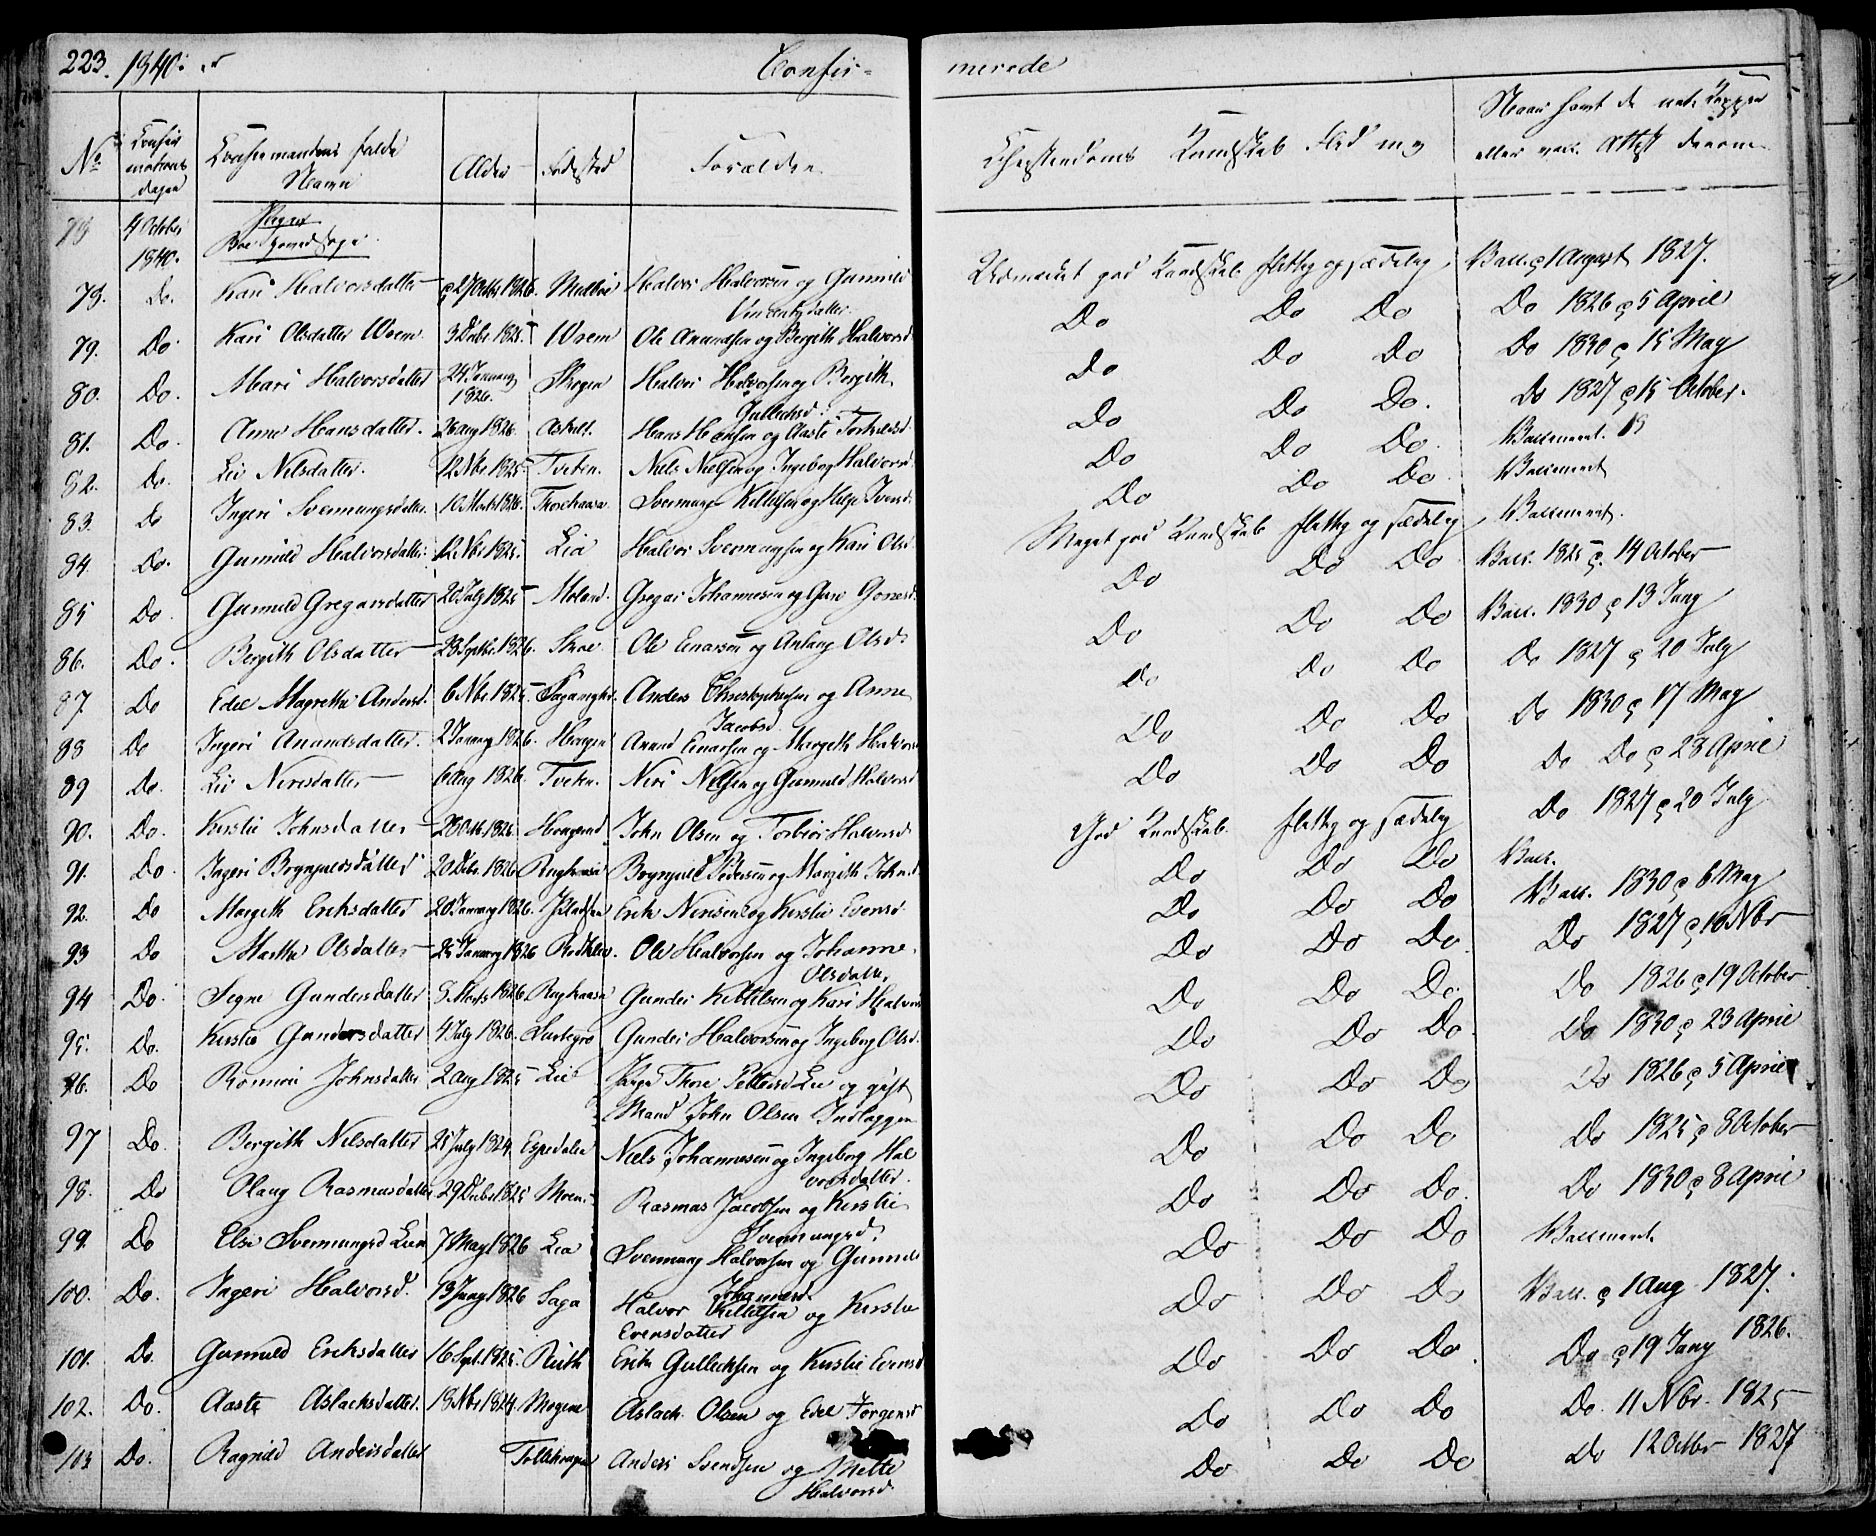 223. 1840.
Confir-
merede
No
Confirmations dagen
Confirmandens fulde Navn
Alder
Fødested
Forældre
Christendoms Kundskab Flid
Naar samt de nat. Kopper eller vacc. Attest derom
78
4 October 1840.
Piger
Boe
78. do. Kari Halvorsdatter 27 Octbr 1826. Halvor Halvorsen og Gunnild Vincentsdatter. Udmerket god Kundskab flittig og sædelig Vacc. ç 1 August 1827.
79. Do Kari Olsdatter Wrem. 3 Debr. 1825. Wrem Ole Anundsen og Bergith Halvorsd. Do Do Do Do 1826 ç 5 April
80. Do. Mari Halvorsdatter 24 January 1826. Skogen Halvor Halvorsen og Bergith Gullechsd. Do Do Do Do 1830 ç 15 May
81. Do Anne Hansdatter. 26 Aug 1826. Hans Hansen og Aaste Torkildsd. Do Do Do. Do 1827 ç 15 October.
82. Do. Liv Nilsdatter. 12 Nbr. 1825 Tveten. Niels Nielsen og Ingeborg Halvorsd. Do Do Do. Vaccineret.
83. do Ingeri Svennungsdatter. 10 Marts 1826. Svennung Kittelsen og Iversd. Do Do Do Vaccineret
84. Do. Gunnild Halvorsdatter. 12 Nbr. 1825 Lia Halvor Svennungsen og Kari Olsd. Meget god Kundskab flittig og sædelig Vaccineret.
85 Do Gunnild Gregarsdatter 20 July 1825 Moland. Gregar Johannesen og Guro Gonesd. Do Do Do Vacc. 1825 ç. 14 October
86. Do. Bergith Olsdatter 28 Septbr. 1826. Skoe. Ole Einarsen og Anlaug Olsd. Do Do Do Vacc. 1830 ç 13 Jany
87. Do Edel Magrethe Andersd. 6 Nbr. 1825 Anders Christophersen og Anne Jacobsd. Do Do Do Do 1827 ç 20 July
88 Do Ingeri Anundsdatter. 2 January 1826. Haugen Anund Einarsen og Margith Halvorsd Do Do Do Do 1830 ç 17 May
89 Do. Liv Nerisdatter 6 Aug 1826. Tveten. Neri Nilsen og Gunnild Halvorsd Do Do Do Do Do ç 23 April
90. Do. Kirstie Johnsdatter 28 Octb. 1826. John Olsen og Torbior Halvorsd. God Kundskab. flittig og sædelig Do 1827 ç 20 July
91. Do. Ingeri Brynjulvsdatter 20 Debr. 1826 Brynjulf Pedersen og Margith Johnsd Do Do Do Vacc.
92. Do Margith Eriksdatter 20 January 1826. Erik Nerisen og Kirstie Evensd. Do Do Do Vacc. 1830 ç 6 May
93 Do Marthe Olsdatter 25 January 1826 Ole Halvorsen og Johanne Olsdatter. Do Do Do Do 1827 ç 10 Nbr
94 Do. Signe Gundersdatter 3 Marts 1826 Gunder Kittelsen og Kari Halvorsd Do Do Do. Do 1826 ç 19 October
95. Do. Kirstie Gundersdatter 4 July 1826. Gunder Halvorsen og Ingeborg Olsd. Do Do Do. Do 1830 ç 23 April
96. Do Ronnoi Johnsdatter 2 Aug 1825 Lie Pige Thore Pettersd Lie og gift Mand John Olsen Do Do Do Do 1826 ç 5 April
97 Do. Bergith Nilsdatter 25 July 1824. Espedalen Niels Johannesen og Ingeborg Halvorsdatter. Do Do Do Do 1825 ç 8 October
98. Do Olaug Rasmusdatter 29 Debr 1825 Moen. Rasmus Jacobsen og Kirstie Svennungsd. Do Do Do. Do 1830 ç 8 April
99. Do Else Svennungsd Lien 7 May 1826 Lia Svennung Halvorsen og Gunnild Johannesd. Do Do Do Vaccineret.
100. Do. Ingeri Halvorsd. 13 Jany 1826 Saga Halvor Kittelsen og Kirstie Evensdatter Do Do Do Vacc. ç 1 Aug 1827.
101. Do. Gunnild Eriksdatter 16 Sept. 1825. Erik Gullechsen og Kirstie Evensd Do Do Do. Do ç 19 Jany 1826.
102. Do. Aaste Aslachsdatter. 18 Nbr 1824. Aslach Olsen og Edel Jørgensd Do Do Do Do. 11 Nbr. 1825
103 Do. Ragnild Andersdatter Anders Svendsen og Mette Halvorsd. Do Do Do Do 12 Octbr 1827